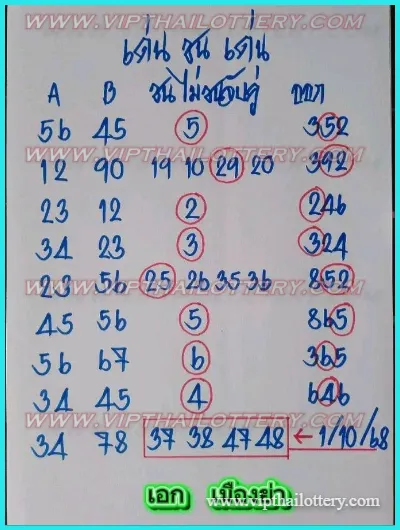 WWW.VIPTHAILOTTERY.COM
เด่น ชน เด่น
A B ชนไม่ชนจับคู่ ออก
56 45 5 352
WWW.VIPTHAILOTTERY.COM
12 90 19 10 29 20 392
23 12 2 246
34 23 3 324
WWW.VIPTHAILOTTERY.COM
23 56 25 26 35 36 852
45 56 5 865
56 67 6 365
34 45 4 646
WWW.VIPTHAILOTTERY.COM
34 78 37 38 47 48 ← 1/10/68
เอก เมือง
www.vipthailottery.com